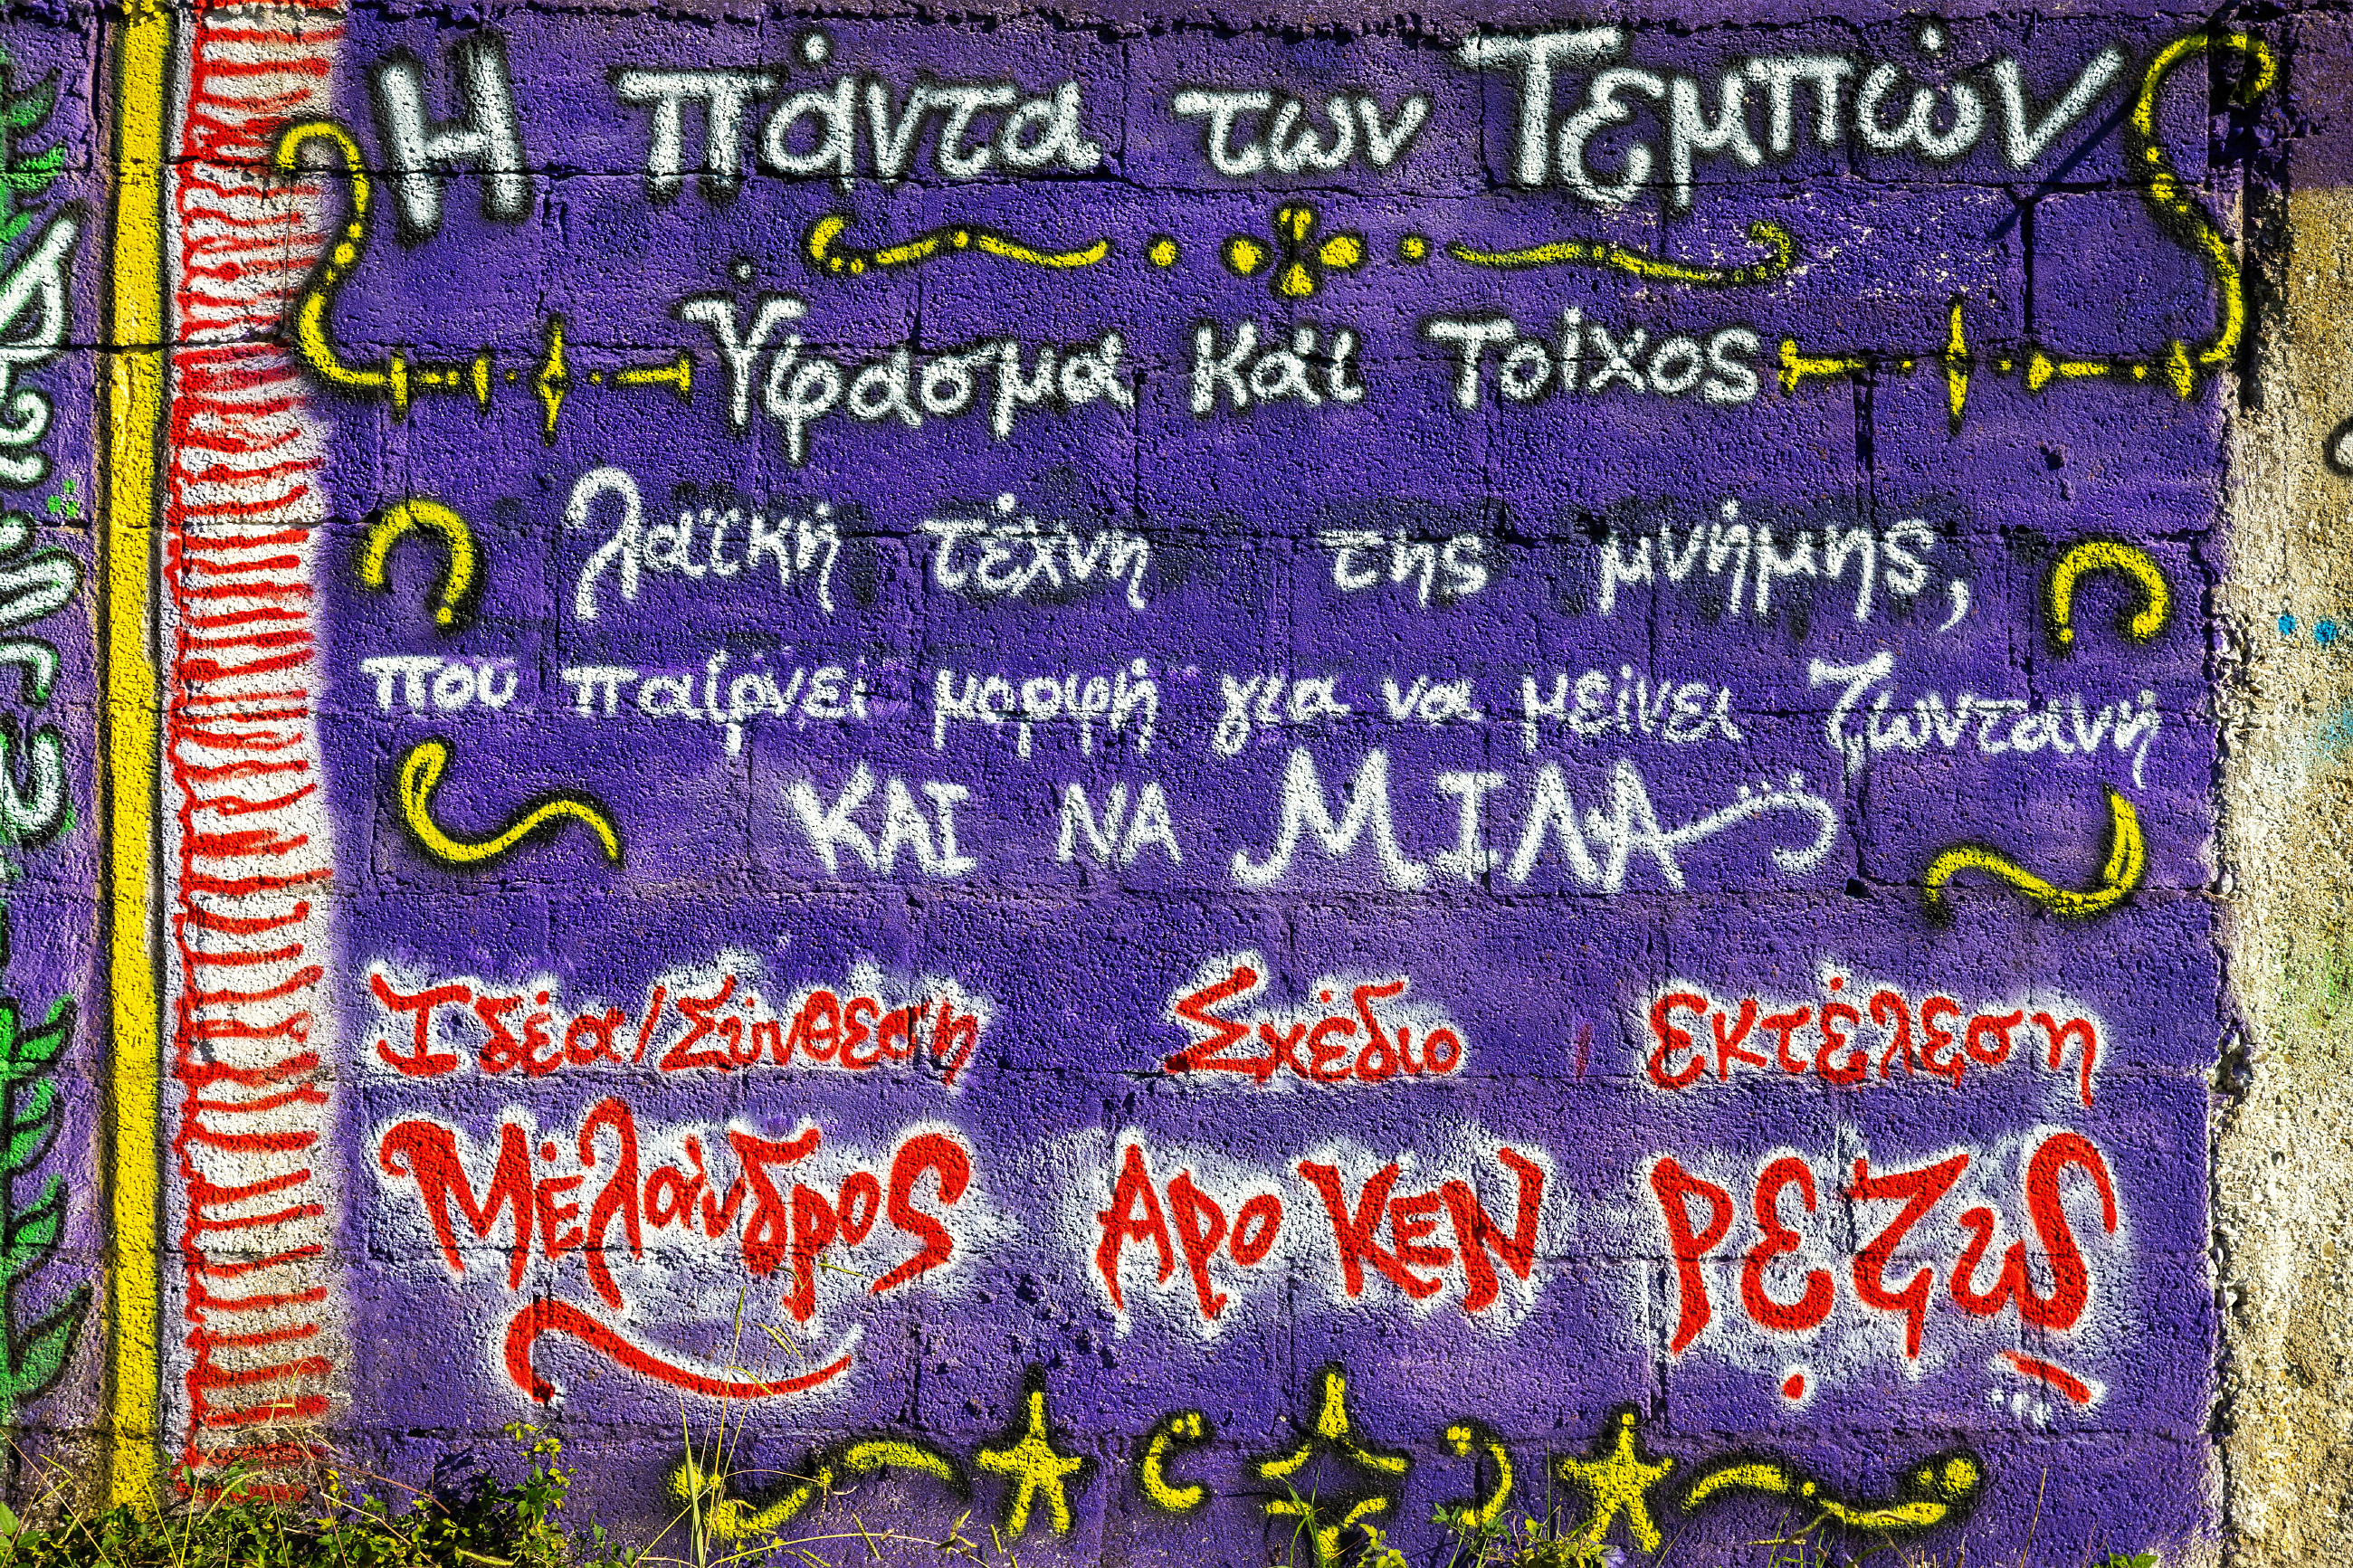 Η πάντα των Τεμπών
Ύφασμα και Τοίχος
λαϊκή τέχνη της μνήμης,
που παίρνει μορφή για να μείνει ζωντανή
ΚΑΙ ΝΑ ΜΙΛΑ
Ιδέα/Σύνθεση Σχέδιο Εκτέλεση
Μέλανδρος ΑΡΟ ΚΕΝ ΡΕΖΩS